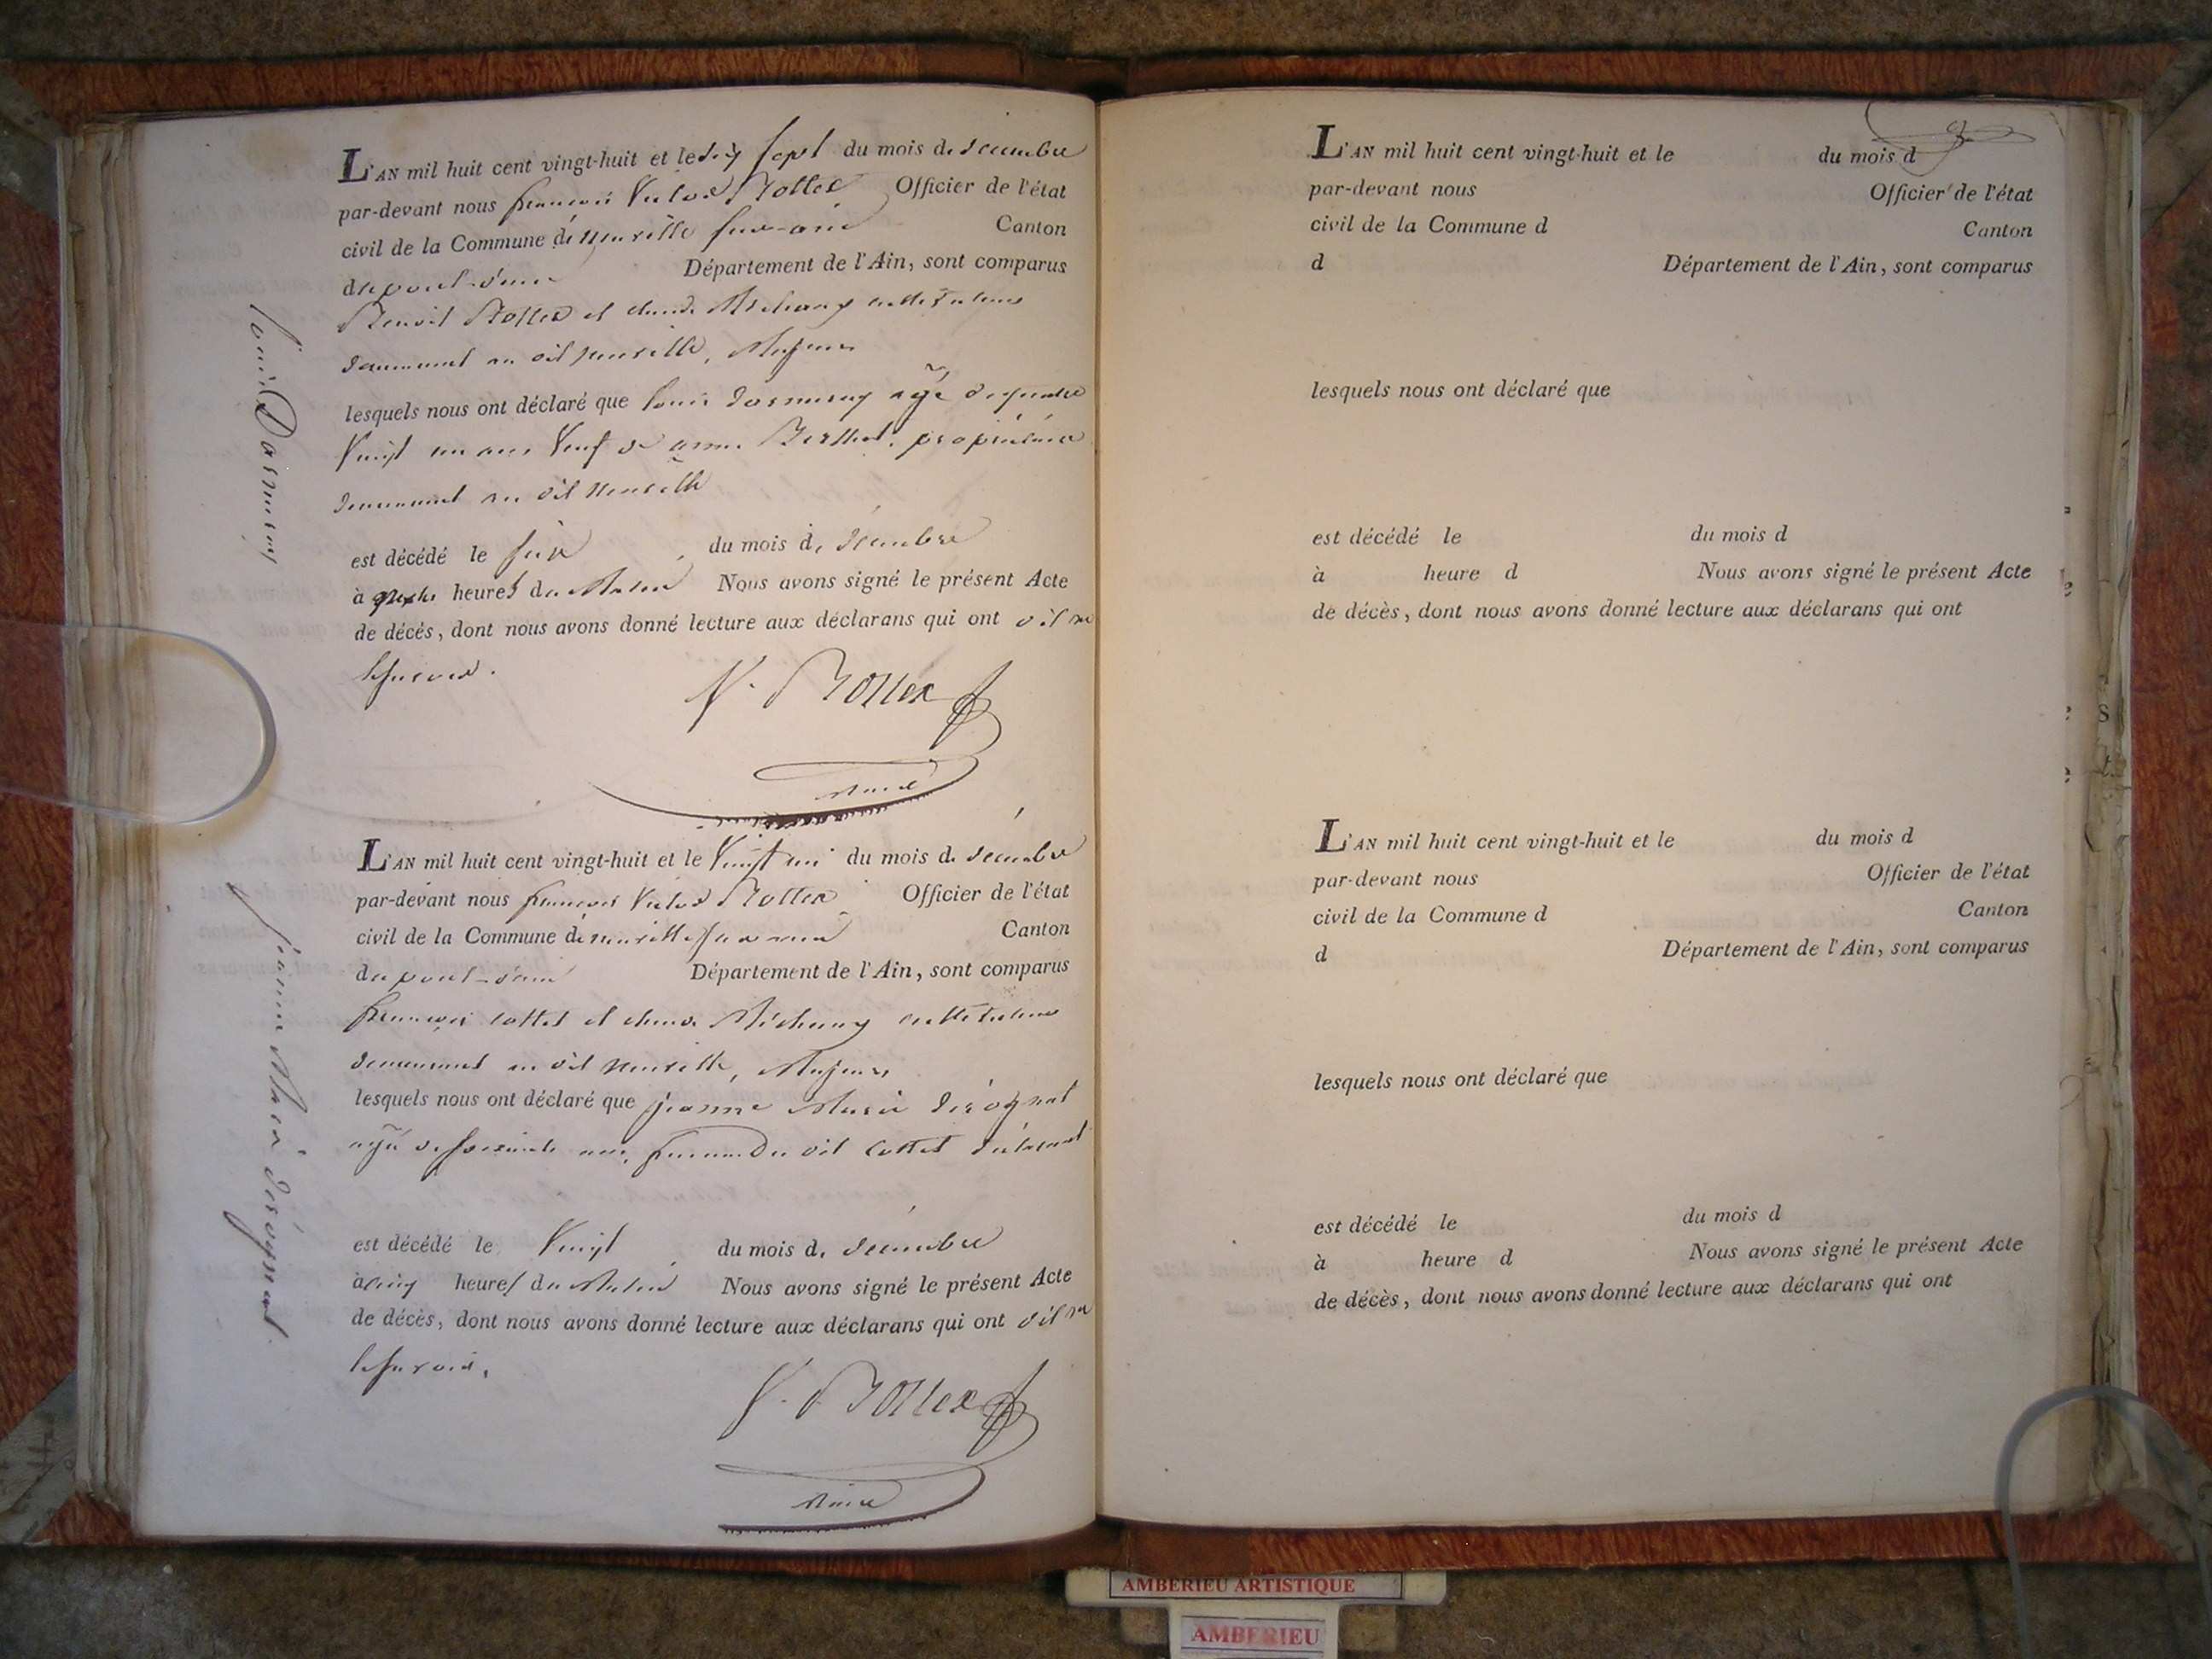 L'AN mil huit cent vingt-huit et le dix sept du mois de décembre
par-devant nous françois Victor Bottex Officier de l'état
civil de la Commune de neuville sur-ain Canton
du pont-d'ain Département de l'Ain, sont comparus
Benoit Bottex et claude Méchany cultivateurs
demeurant au dit neuville, Majeurs
lesquels nous ont déclaré que louis Dornuroy agé de quatre
Vingt un ans Veuf de anne Berthet, propriétaire
demeurant au dit neuville
est décédé le seize du mois de décembre
à heures du Matin Nous avons signé le présent Acte
de décès, dont nous avons donné lecture aux déclarans qui ont dit ne
le savoir.
V. Bottex
Maire
Louis
L'AN mil huit cent vingt-huit et le Vingt un du mois de décembre
par-devant nous françois Victor Bottex Officier de l'état
civil de la Commune de neuville sur ain Canton
du pont-d'ain Département de l'Ain, sont comparus
françois cottet et claude Méchany cultivateurs
demeurant au dit neuville, Majeurs
lesquels nous ont déclaré que jeanne Marie dérognat
agée de soixante ans, femme du dit Cottet déclarant
est décédé le Vingt du mois de décembre
à cinq heures du Matin Nous avons signé le présent Acte
de décès, dont nous avons donné lecture aux déclarans qui ont dit ne
le savoir.
V. Bottex
Maire
jeanne Marie dérognat
L'AN mil huit cent vingt-huit et le du mois d
par-devant nous Officier de l'état
civil de la Commune d Canton
d Département de l'Ain, sont comparus
lesquels nous ont déclaré que
est décédé le du mois d
à heure d Nous avons signé le présent Acte
de décès, dont nous avons donné lecture aux déclarans qui ont
L'AN mil huit cent vingt-huit et le du mois d
par-devant nous Officier de l'état
civil de la Commune d Canton
d Département de l'Ain, sont comparus
lesquels nous ont déclaré que
est décédé le du mois d
à heure d Nous avons signé le présent Acte
de décès, dont nous avons donné lecture aux déclarans qui ont
AMBERIEU ARTISTIQUE
AMBERIEU